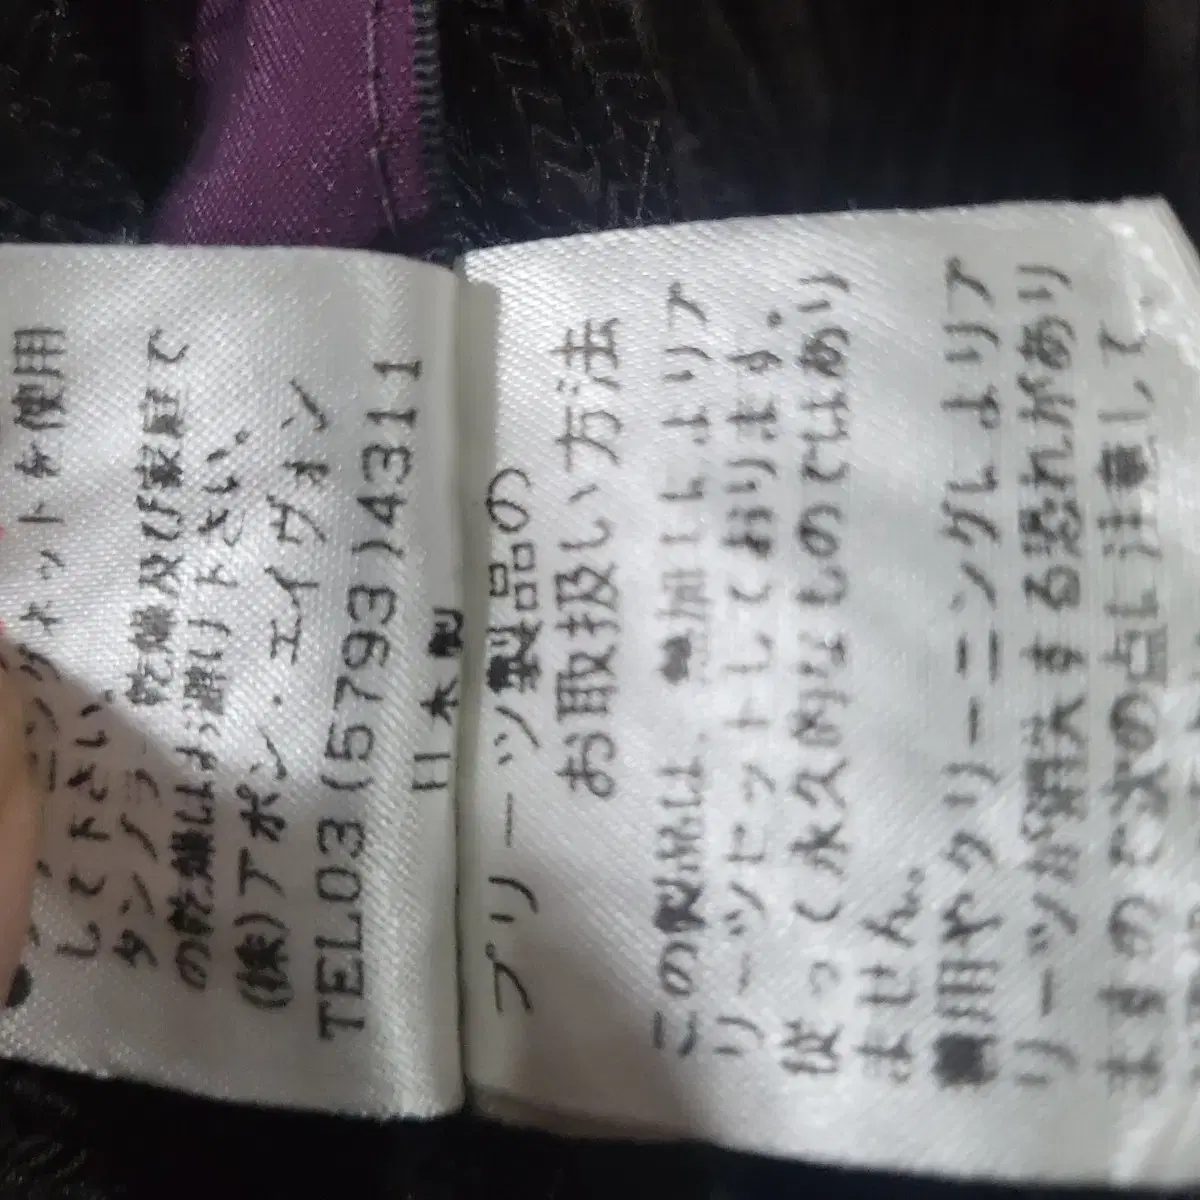 ングネットを使用
して下さい。
タンブラー乾燥及び家庭で
の乾燥はお避け下さい。
(株)アボン・エイヴォン
TEL03(5793)4311
日本製
プリーツ製品の
お取扱い方法
この製品は、熱加工によりプ
リーツセットしております。
従って永久的なものではあり
ません。
着用やクリーニングによりプ
リーツが消失する恐れがあり
ますので次の点に注意して